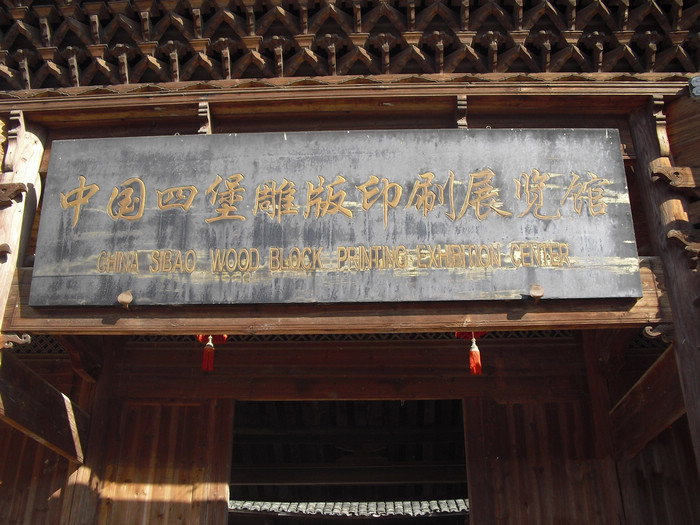 中国四堡雕版印刷展览馆
CHINA SIBAO WOOD BLOCK PRINTING EXHIBITION CENTER